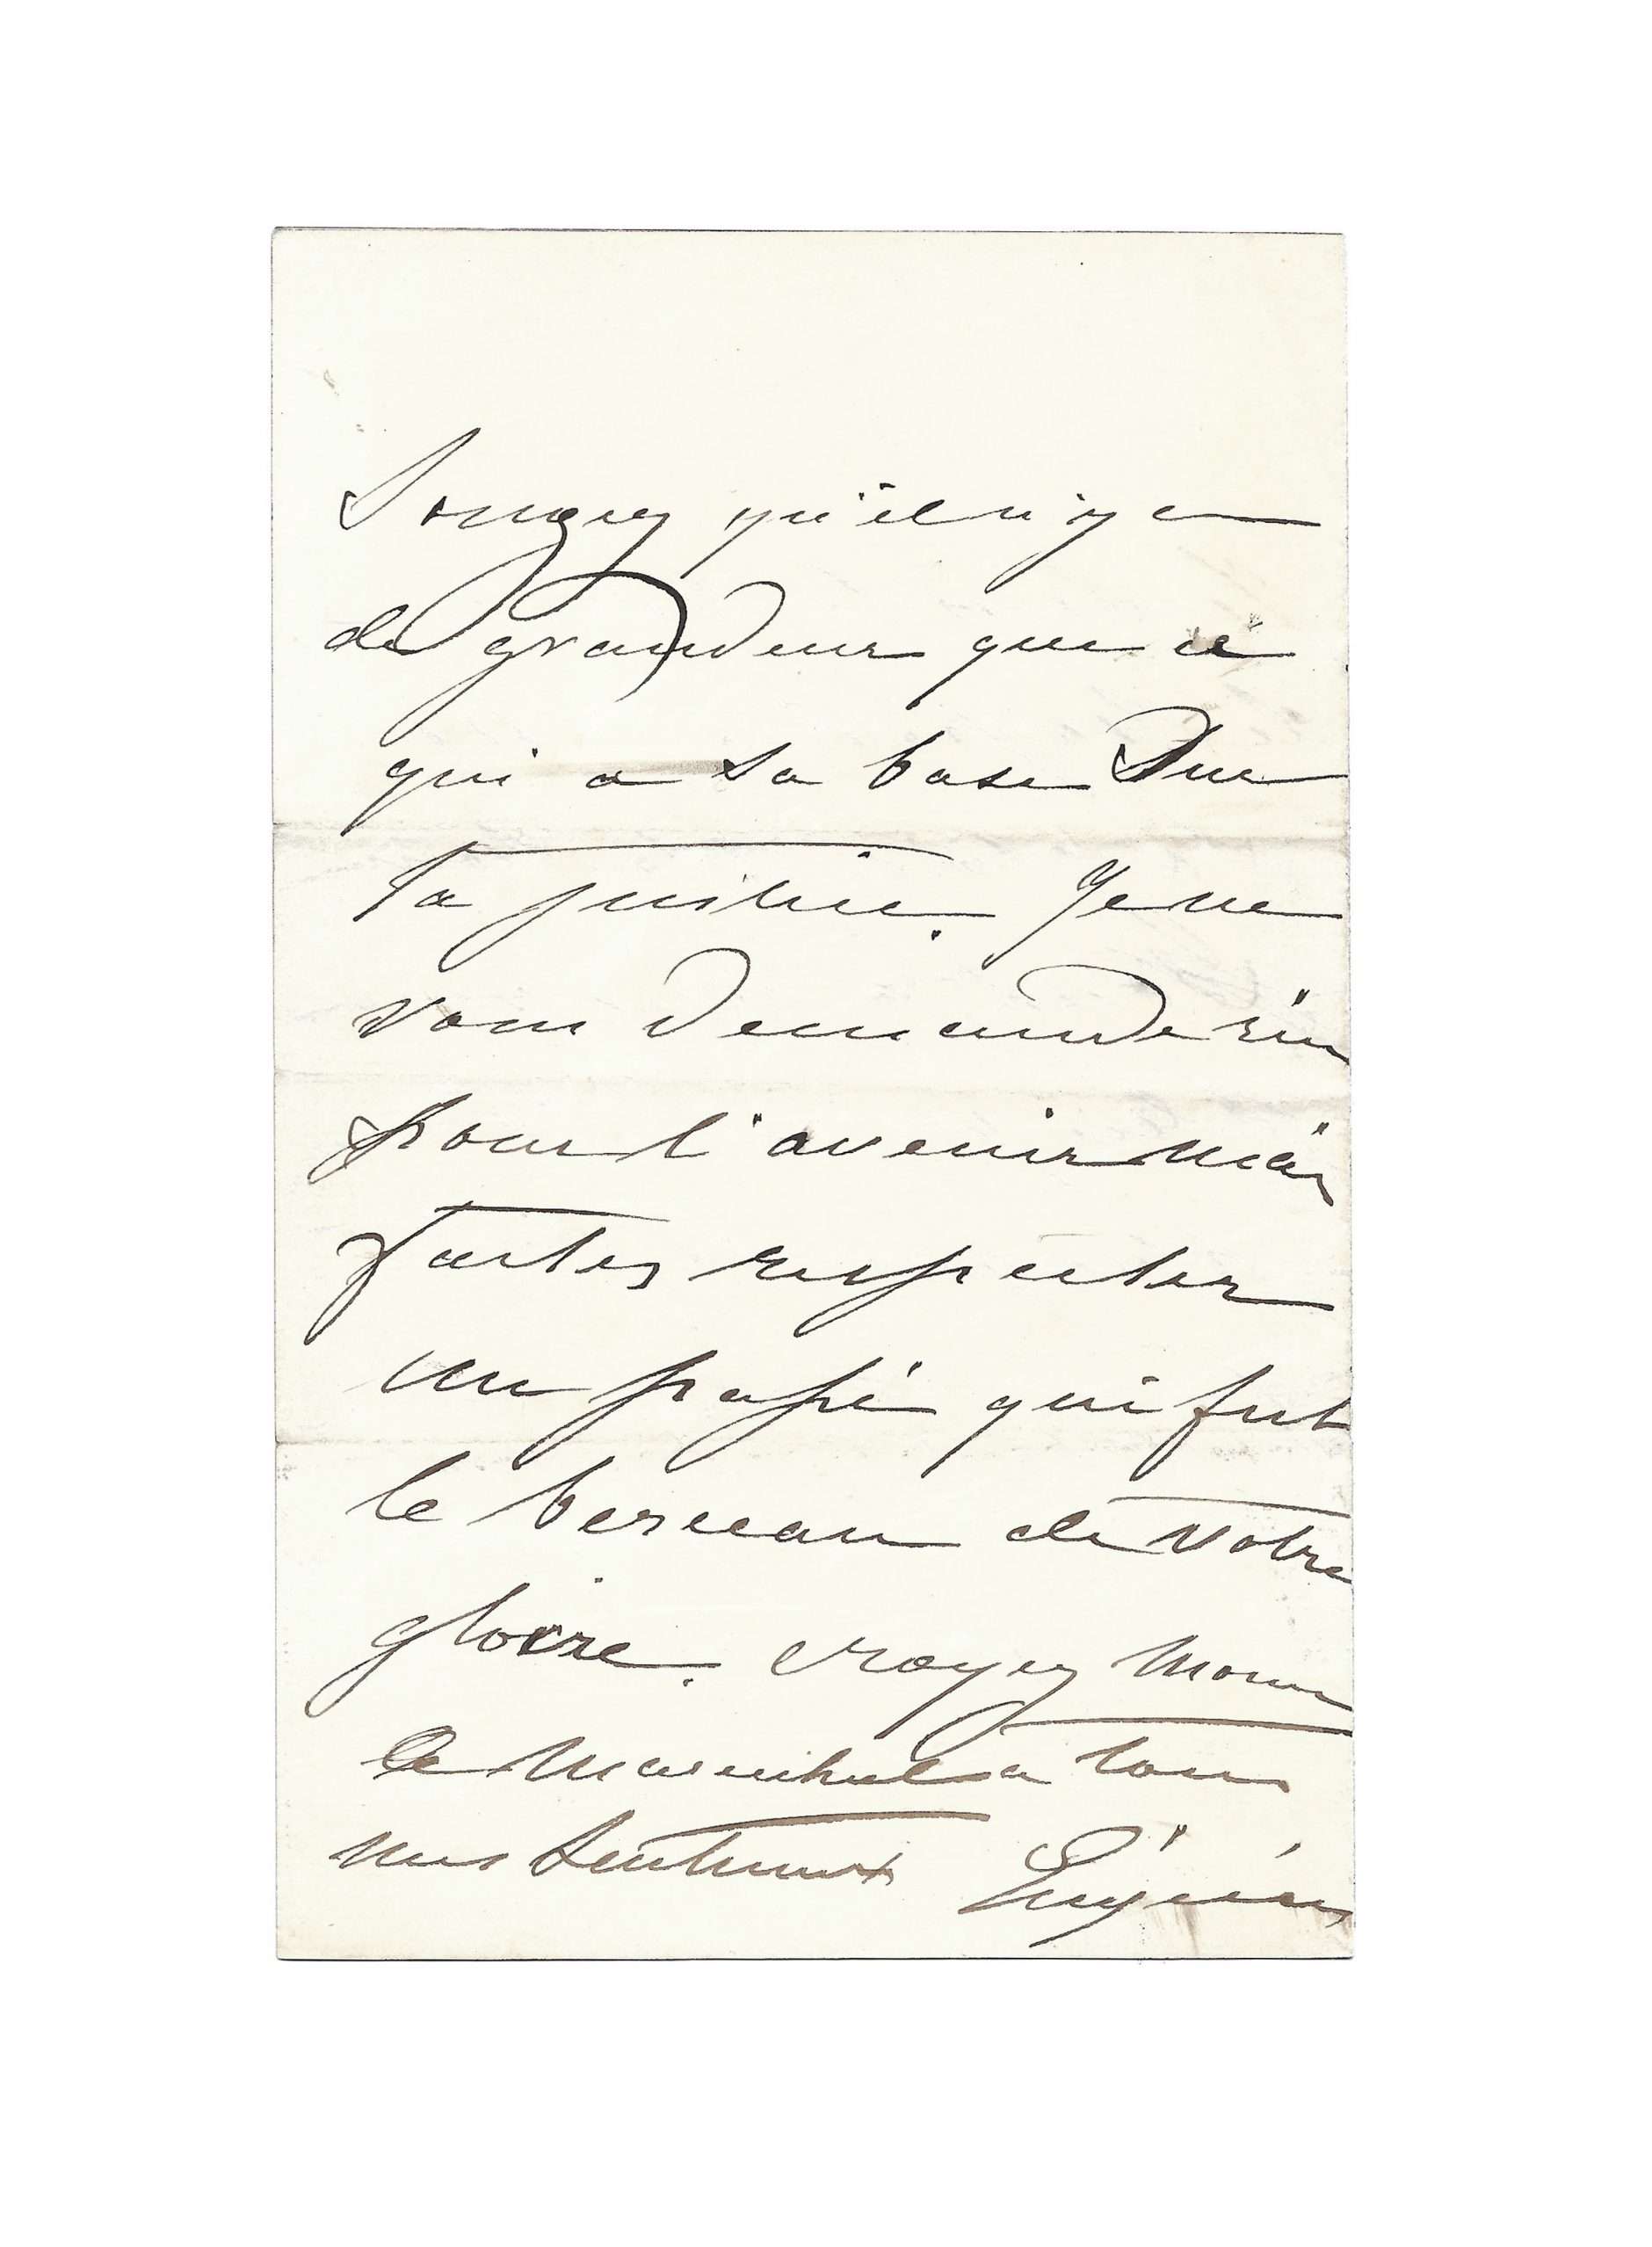 Songez qu'il n'y a
de grandeur que ce
qui a sa base Sur
la justice. Je ne
vous demande rien
pour l'avenir mais
faites respecter
un passé qui fut
le berceau de votre
gloire. Croyez Monsr
le Marechal a tous
mes Sentiments Eugénie